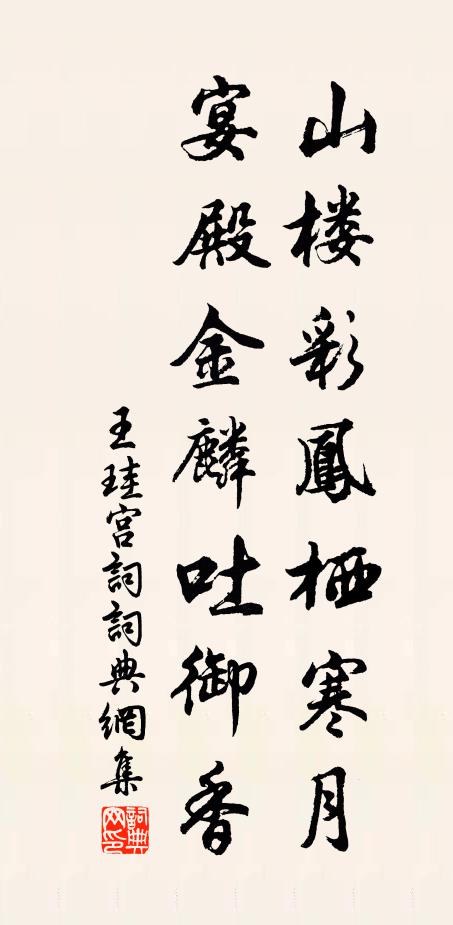 山楼彩鳳栖寒月
宴殿金麟吐御香
王珪宫詞詞典網集
詞典网印